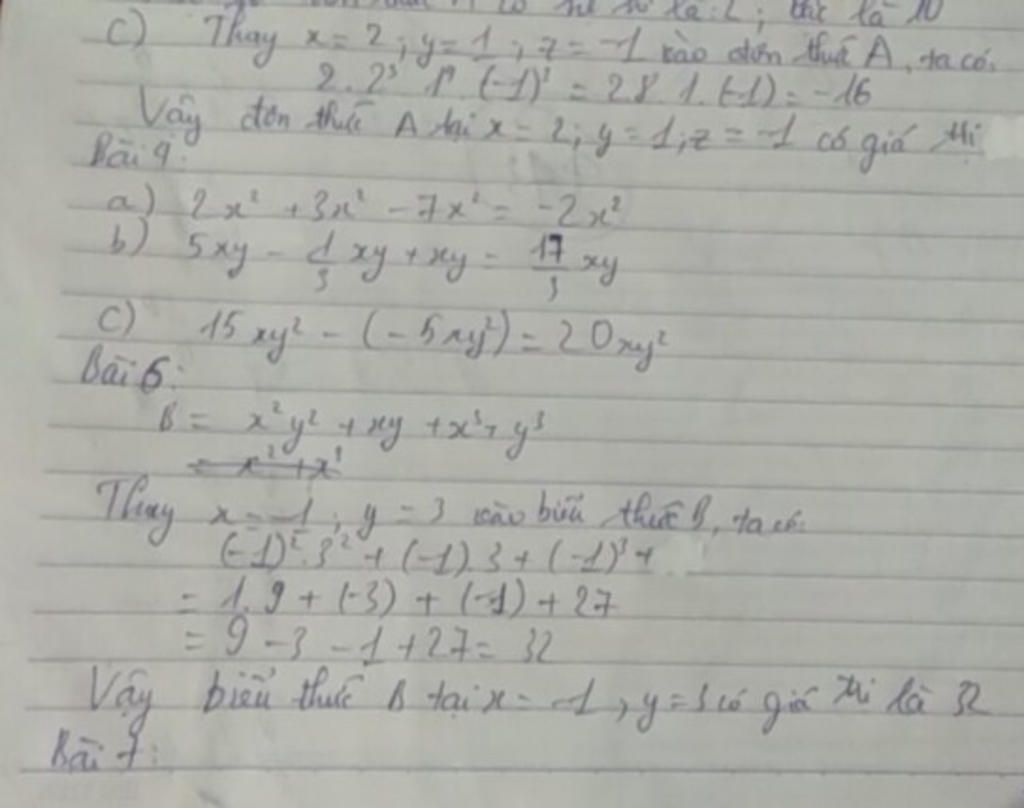 là 2; bậc là 10
c) Thay x = 2; y = 1; z = -1 vào đơn thức A, ta có:
2.2³ 1⁹ (-1)³ = 2.8.1.(-1) = -16
Vậy đơn thức A tại x = 2; y = 1; z = -1 có giá trị
Bài 4:
a) 2x² + 3x² - 7x² = -2x²
b) 5xy - 1/3 xy + xy = 17/3 xy
c) 15xy² - (-5xy²) = 20xy²
Bài 6:
B = x²y² + xy + x³ + y³
Thay x = -1; y = 3 vào biểu thức B, ta có:
(-1)².3² + (-1).3 + (-1)³ +
= 1.9 + (-3) + (-1) + 27
= 9 - 3 - 1 + 27 = 32
Vậy biểu thức B tại x = -1, y = 3 có giá trị là 32
Bài 7: